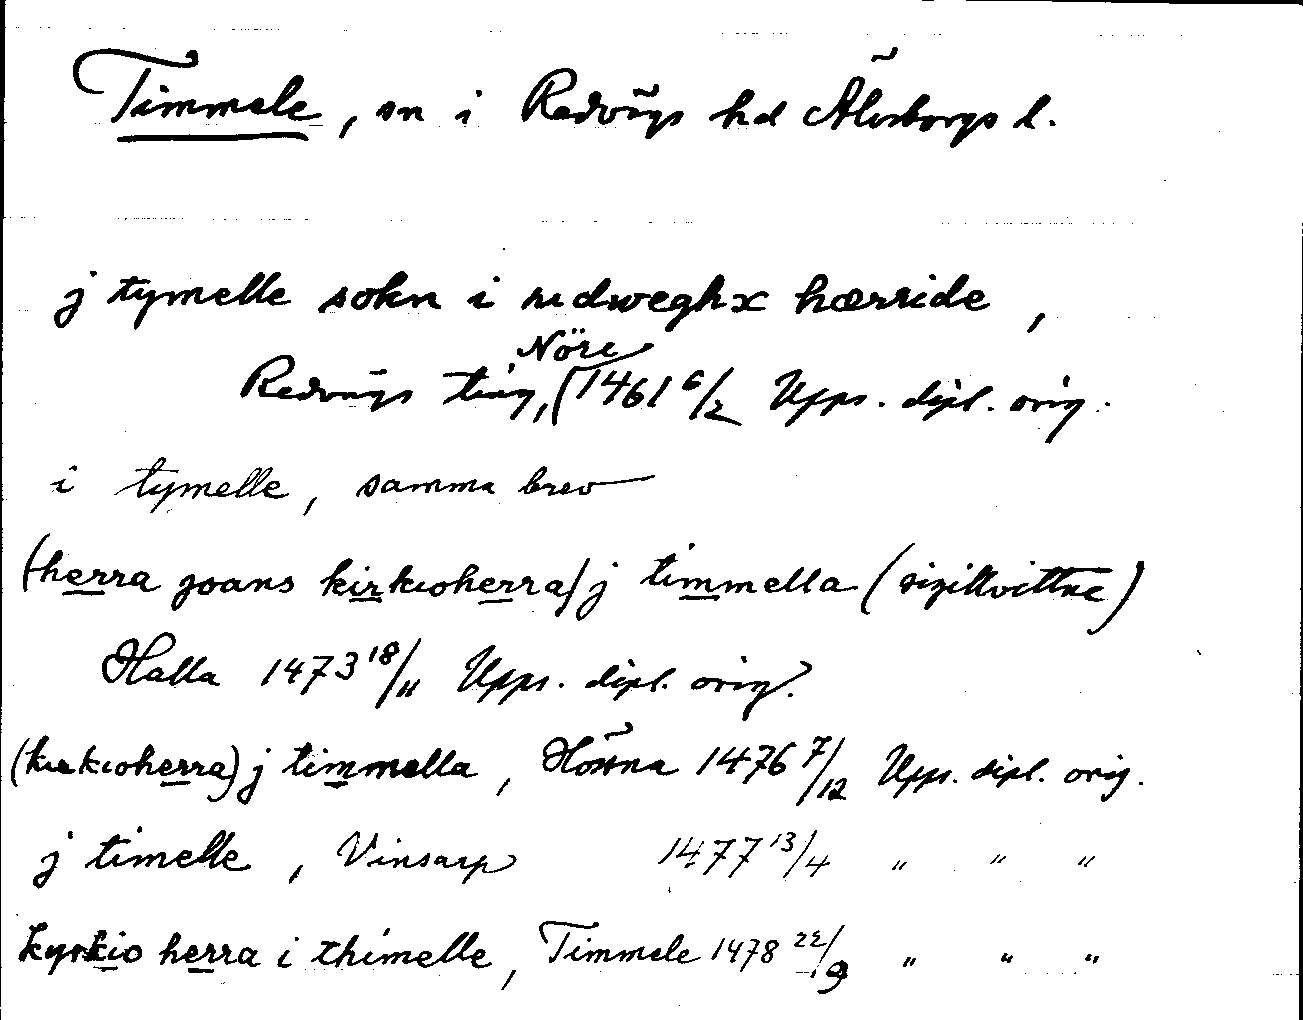 Timmele, sn i Redvägs hd Älvsborgs l.
j tymelle sokn i redweghx hærride,
Redvägs ting, Nöre 1461 6/2 Upps. dipl. orig.
i tymelle, samma brev
(herra joans kirkioherra) j timmella (sigillvittne)
Halla 1473 18/11 Upps. dipl. orig.
(kirkioherra) j timmella, Hössna 1476 7/12 Upps. dipl. orig.
j timelle, Vinsarp 1477 13/4 " " "
kyrkio herra i thimelle, Timmele 1478 22/9 " " "